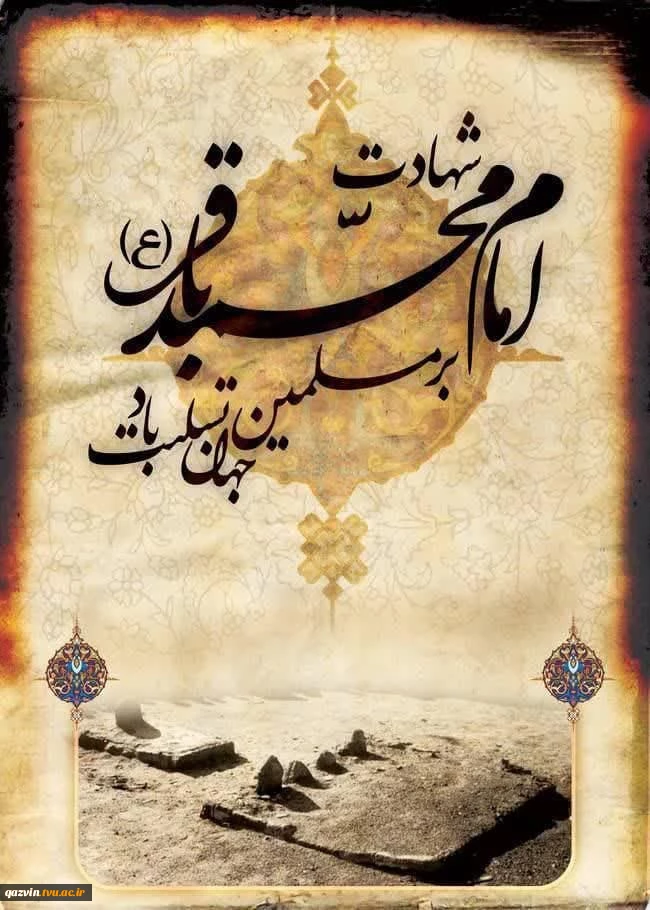 شهادت
امام محمد باقر (ع)
بر مسلمین
جهان تسلیت باد
qazvin.tvu.ac.ir